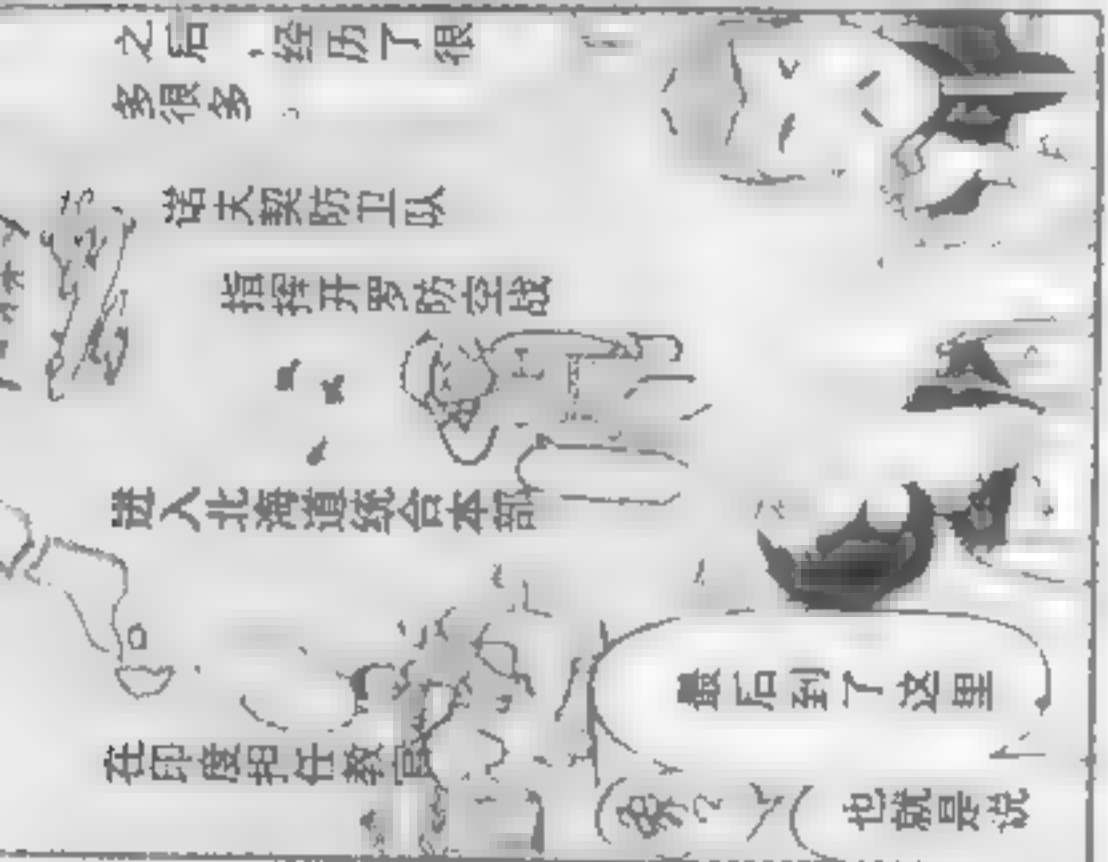 之后，经历了很
多很多。
诺夫契防卫队
指挥开罗防空战
进入北海道统合本部
在印度担任教官
最后到了这里
也就是说